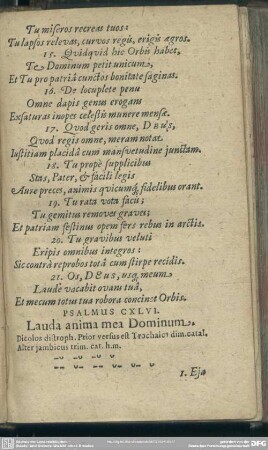 Tu miseros recreas tuos:
Tu lapsos relevas, curvos regis, erigis ægros.
15. Quidquid hic Orbis habet,
Te Dominum petit unicum,
Et Tu pro patriâ cunctos bonitate saginas.
16. De locuplete penu
Omne dapis genus erogans
Exsaturas inopes celestis munere mensæ.
17. Quod geris omne, DEUS,
Quod regis omne, meram notat
Iustitiam placidâ cum mansvetudine junctam.
18. Tu propè supplicibus
Stas, Pater, & facili legis
Aure preces, animis quicumq́; fidelibus orant.
19. Tu rata vota facis;
Tu gemitus removes graves;
Et patriam festinus opem fers rebus in arctis.
20. Tu gravibus veluti
Eripis omnibus integros:
Sic contrà reprobos totâ cum stirpe recidis.
21. Os, DEUS, usq; meum
Laude vacabit ovans tuâ,
Et mecum totus tua robora concinet Orbis.
PSALMUS CXLVI.
Lauda anima mea Dominum.
Dicolos distroph. Prior versus est Trochaicꝰ dim. catal.
Alter jambicus trim. cat. h.m.
1. Eja